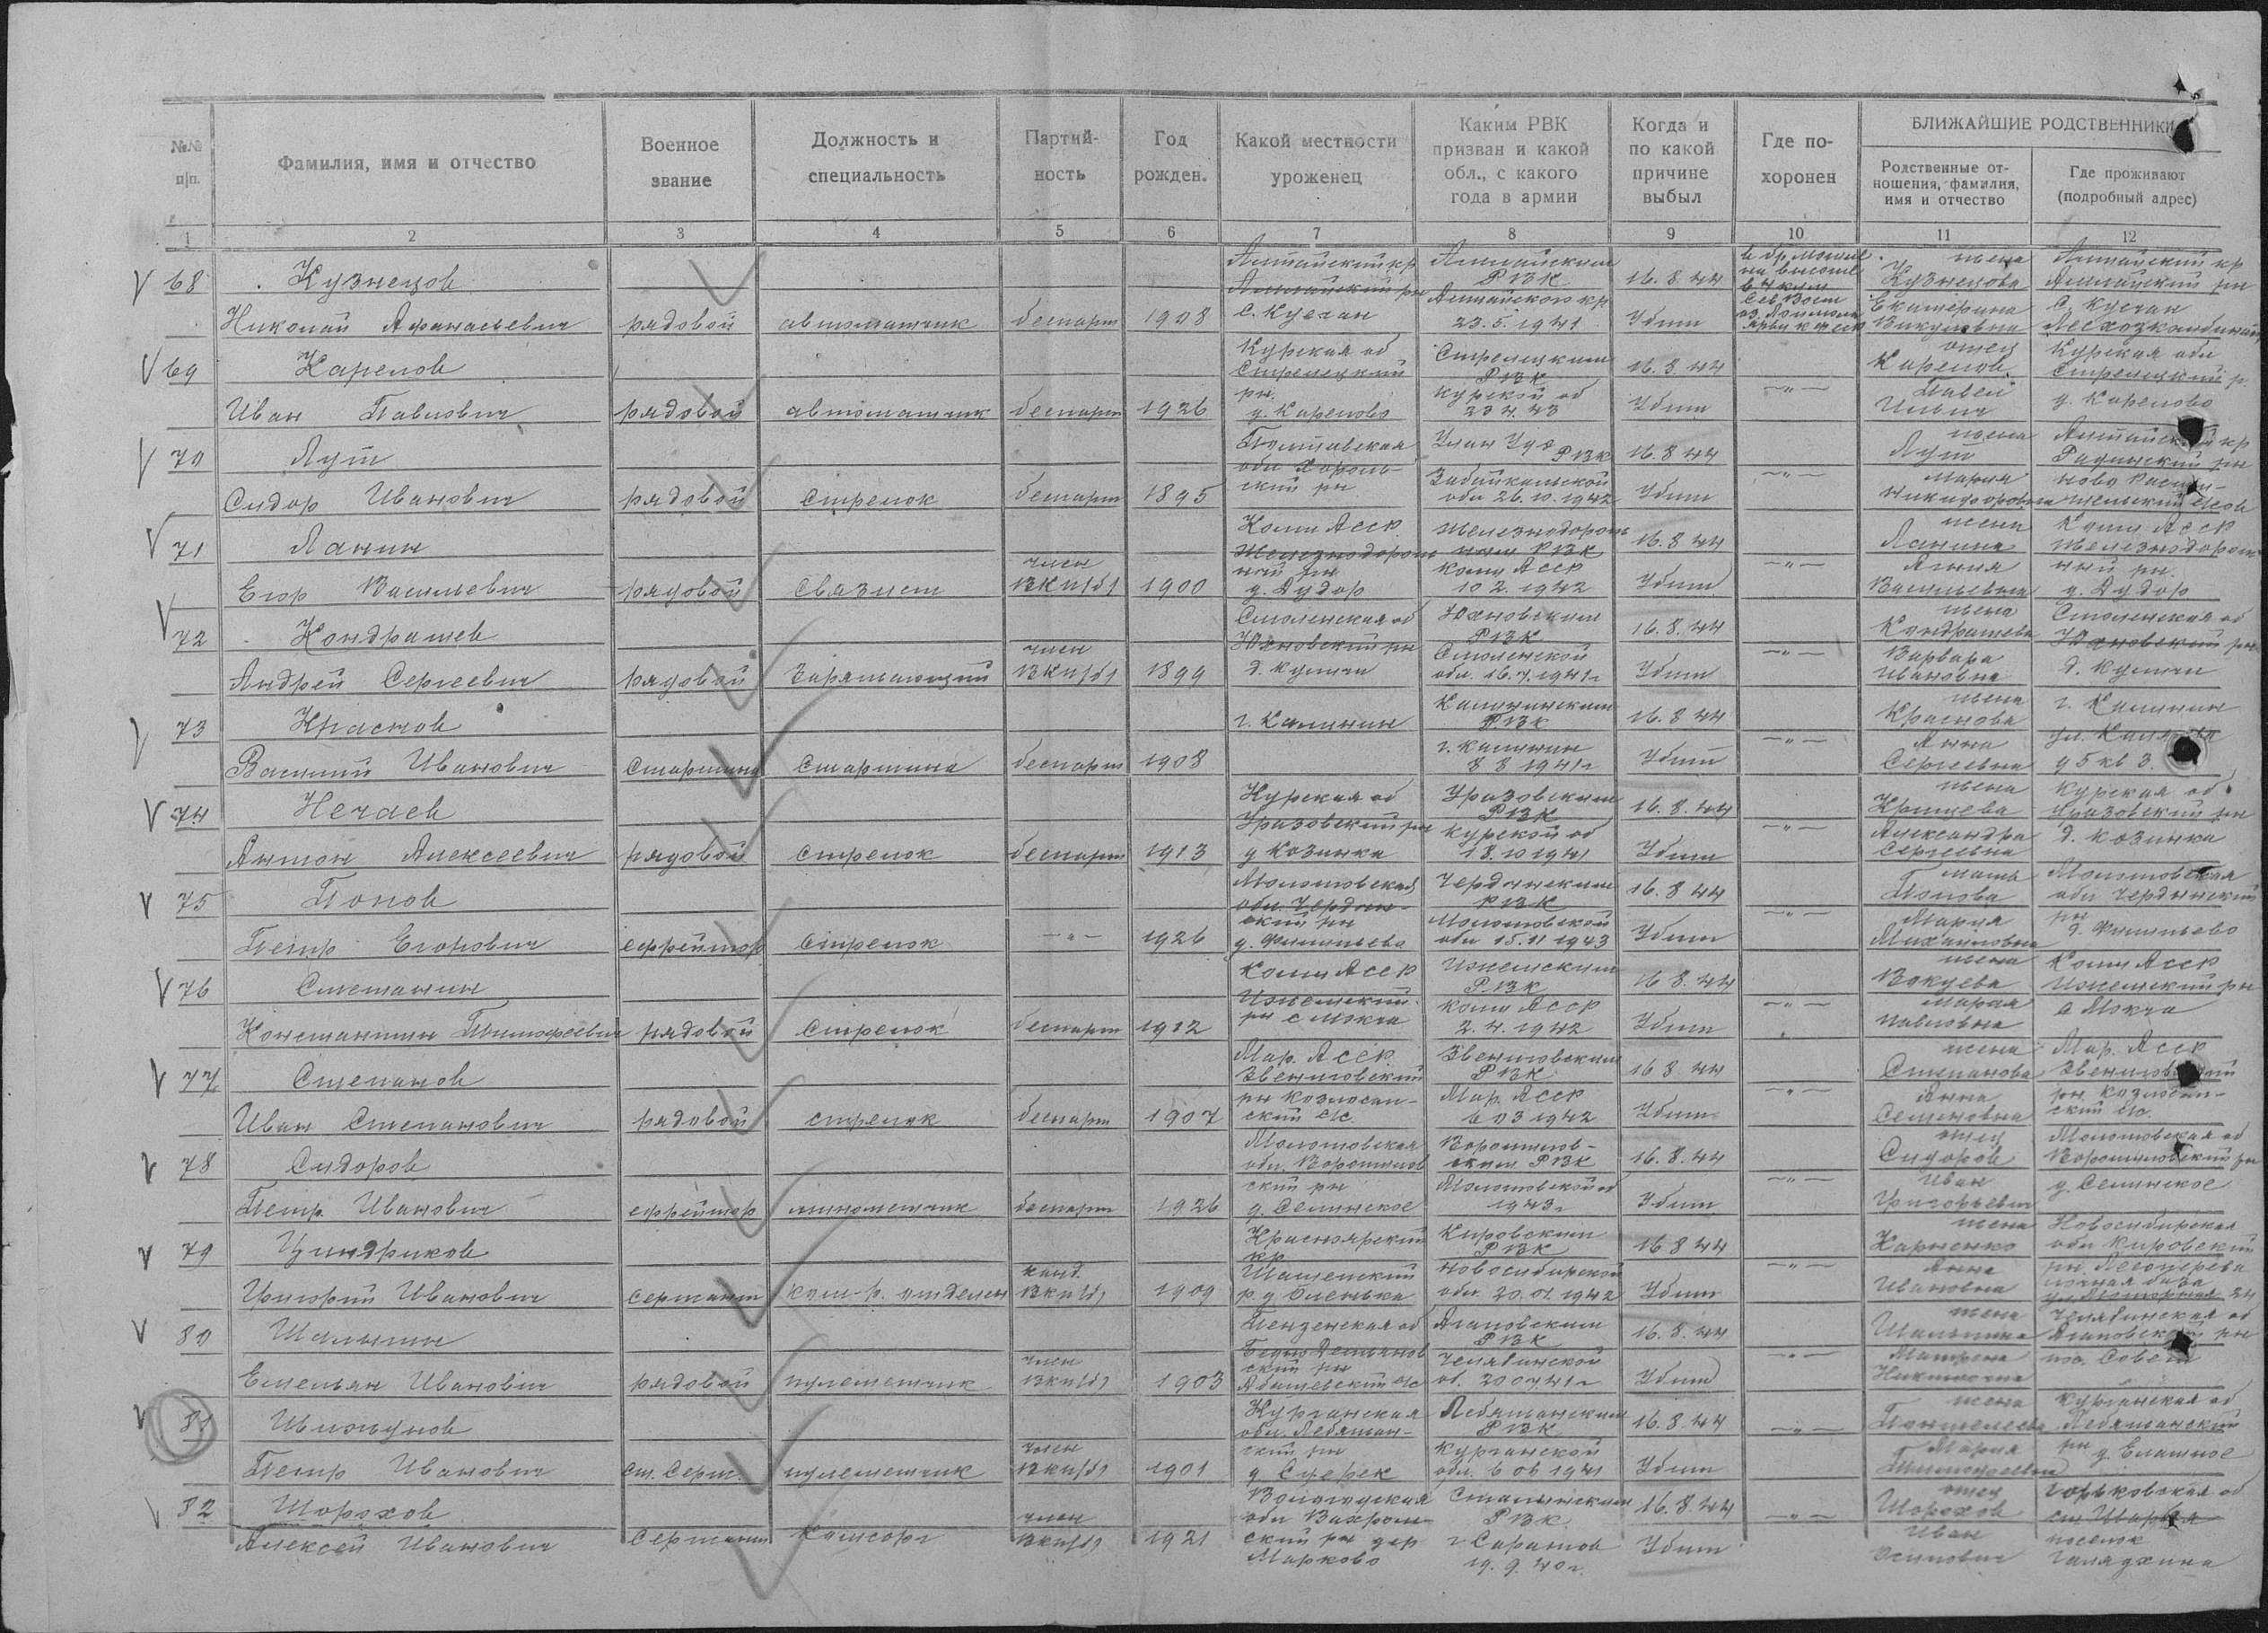 №№ п/п.
Фамилия, имя и отчество
Военное звание
Должность и специальность
Партий-ность
Год рожден.
Какой местности уроженец
Каким РВК призван и какой обл., с какого года в армии
Когда и по какой причине выбыл
Где по-хоронен
БЛИЖАЙШИЕ РОДСТВЕННИКИ
Родственные от-ношения, фамилия, имя и отчество
Где проживают (подробный адрес)
1 2 3 4 5 6 7 8 9 10 11 12
68 Кузнецов
Николай Афанасьевич рядовой автоматчик беспарт 1908
Алтайский кр Алтайский рн с. Куяган
Алтайским РВК Алтайского кр 23.5.1941
16.8.44 Убит
жена Кузнецова Екатерина Викуловна
Алтайский кр Алтайский рн с Куяган
69 Карелов
Иван Павлович рядовой автоматчик беспарт 1926
Курская об Стрелецкий рн. д. Карелово
Стрелецким РВК Курской об
16.8.44 Убит
—"—
отец Карелов Павел
Курская обл Стрелецкий р д. Карелово
70 Лут
Сидор Иванович рядовой стрелок беспарт 1895
Полтавская обл Хороль-ский рн
Улан Удэ РВК Забайкальской обл 26.10.1942
16.8.44 Убит
—"—
жена Лут Мария Никифоровна
Алтайский кр
71 Ланин
Егор Васильевич рядовой Связист член ВКП/б/ 1900
Коми Асср Железнодорож ный рн д. Дудор
Железнодорож ным РВК Коми Асср 10 2.1942
16.8.44 Убит
—"—
жена Ланина Васильевна
Коми Асср Железнодорож ный рн. д. Дудор
72 Кондрашев
Андрей Сергеевич рядовой Заряжающий член ВКП/б/ 1899
Смоленская об Юхновский рн
Юхновским РВК Смоленской обл. 16.7.1941г
16.8.44 Убит
—"—
жена Кондрашева Варвара Ивановна
Смоленская об Юхновский рн
73 Краснов
Василий Иванович Старшина Старшина беспарт 1908
г. Калинин
Калининским РВК г. Калинин 8 8 1941г
16.8 44 Убит
—"—
жена Краснова Анна Сергеевна
г. Калинин д 5 кв 3.
74 Нечаев
Антон Алексеевич рядовой стрелок беспарт 1913
Курская об Уразовский рн д Козинка
Уразовским РВК Курской об 18.10 1941
16.8.44 Убит
—"—
жена Александра Сергеевна
Курская об Уразовский рн д. Козинка
75 Попов
Петр Егорович ефрейтор Стрелок —"— 1926
Молотовская обл. Чердын-ский рн
Чердынским РВК Молотовской обл 15.11 1943
16.8.44 Убит
—"—
мать Попова Мария Михайловна
Молотовская обл Чердынский рн
76 Сметанин
Константин Тимофеевич рядовой Стрелок беспарт 1912
Коми Асср Ижемский рн с Мохча
Ижемским РВК Коми Асср 2.4.1942
16 8.44 Убит
—"—
жена Вокуева Мария Павловна
Коми Асср Ижемский рн с Мохча
77 Степанов
Иван Степанович рядовой стрелок беспарт 1907
Мар. Асср Звениговский рн
Звениговским РВК Мар. Асср 6 03 1942
16 8.44 Убит
—"—
жена Степанова Анна Семеновна
Мар. Асср Звениговский рн
78 Сидоров
Петр Иванович ефрейтор минометчик беспарт 1926
Молотовская обл. Ворошилов ский рн д. Селинское
Ворошилов-ским РВК Молотовской об 1943г
16.8.44 Убит
—"—
отец Сидоров Иван Григорьевич
Молотовская об Ворошиловский рн д. Селинское
79 Цундриков
Григорий Иванович сержант ком-р. отделен канд. ВКП/б/ 1909
Красноярский кр
Кировским РВК Новосибирской обл. 20.01.1942
16 8 44 Убит
—"—
жена Харченко Анна Ивановна
Новосибирская обл Кировский рн
80 Шалынин
Емельян Иванович рядовой пулеметчик член ВКП/б/ 1903
Пензенская об Бедно Демьянов ский рн
Агаповским РВК Челябинской об.
16.8.44 Убит
—"—
жена Шалынина Матрена
Челябинская об Агаповский рн
81
Петр Иванович ст. Серж пулеметчик член ВКП/б/ 1901
Курганская обл. Лебяжьев-ский рн д Суерек
РВК Курганской обл. 6 06 1941
16.8.44 Убит
—"—
жена Пантелеева Мария Тимофеевна
Курганская об
82 Шорохов
Алексей Иванович Сержант Комсорг член ВКП/б/ 1921
Вологодская обл Вохром-ский рн дер Марково
Сталинским РВК г Саратов 19.9.40г.
16.8.44 Убит
—"—
отец Шорохов Иван Осипович
Горьковская об ст Шарья поселок